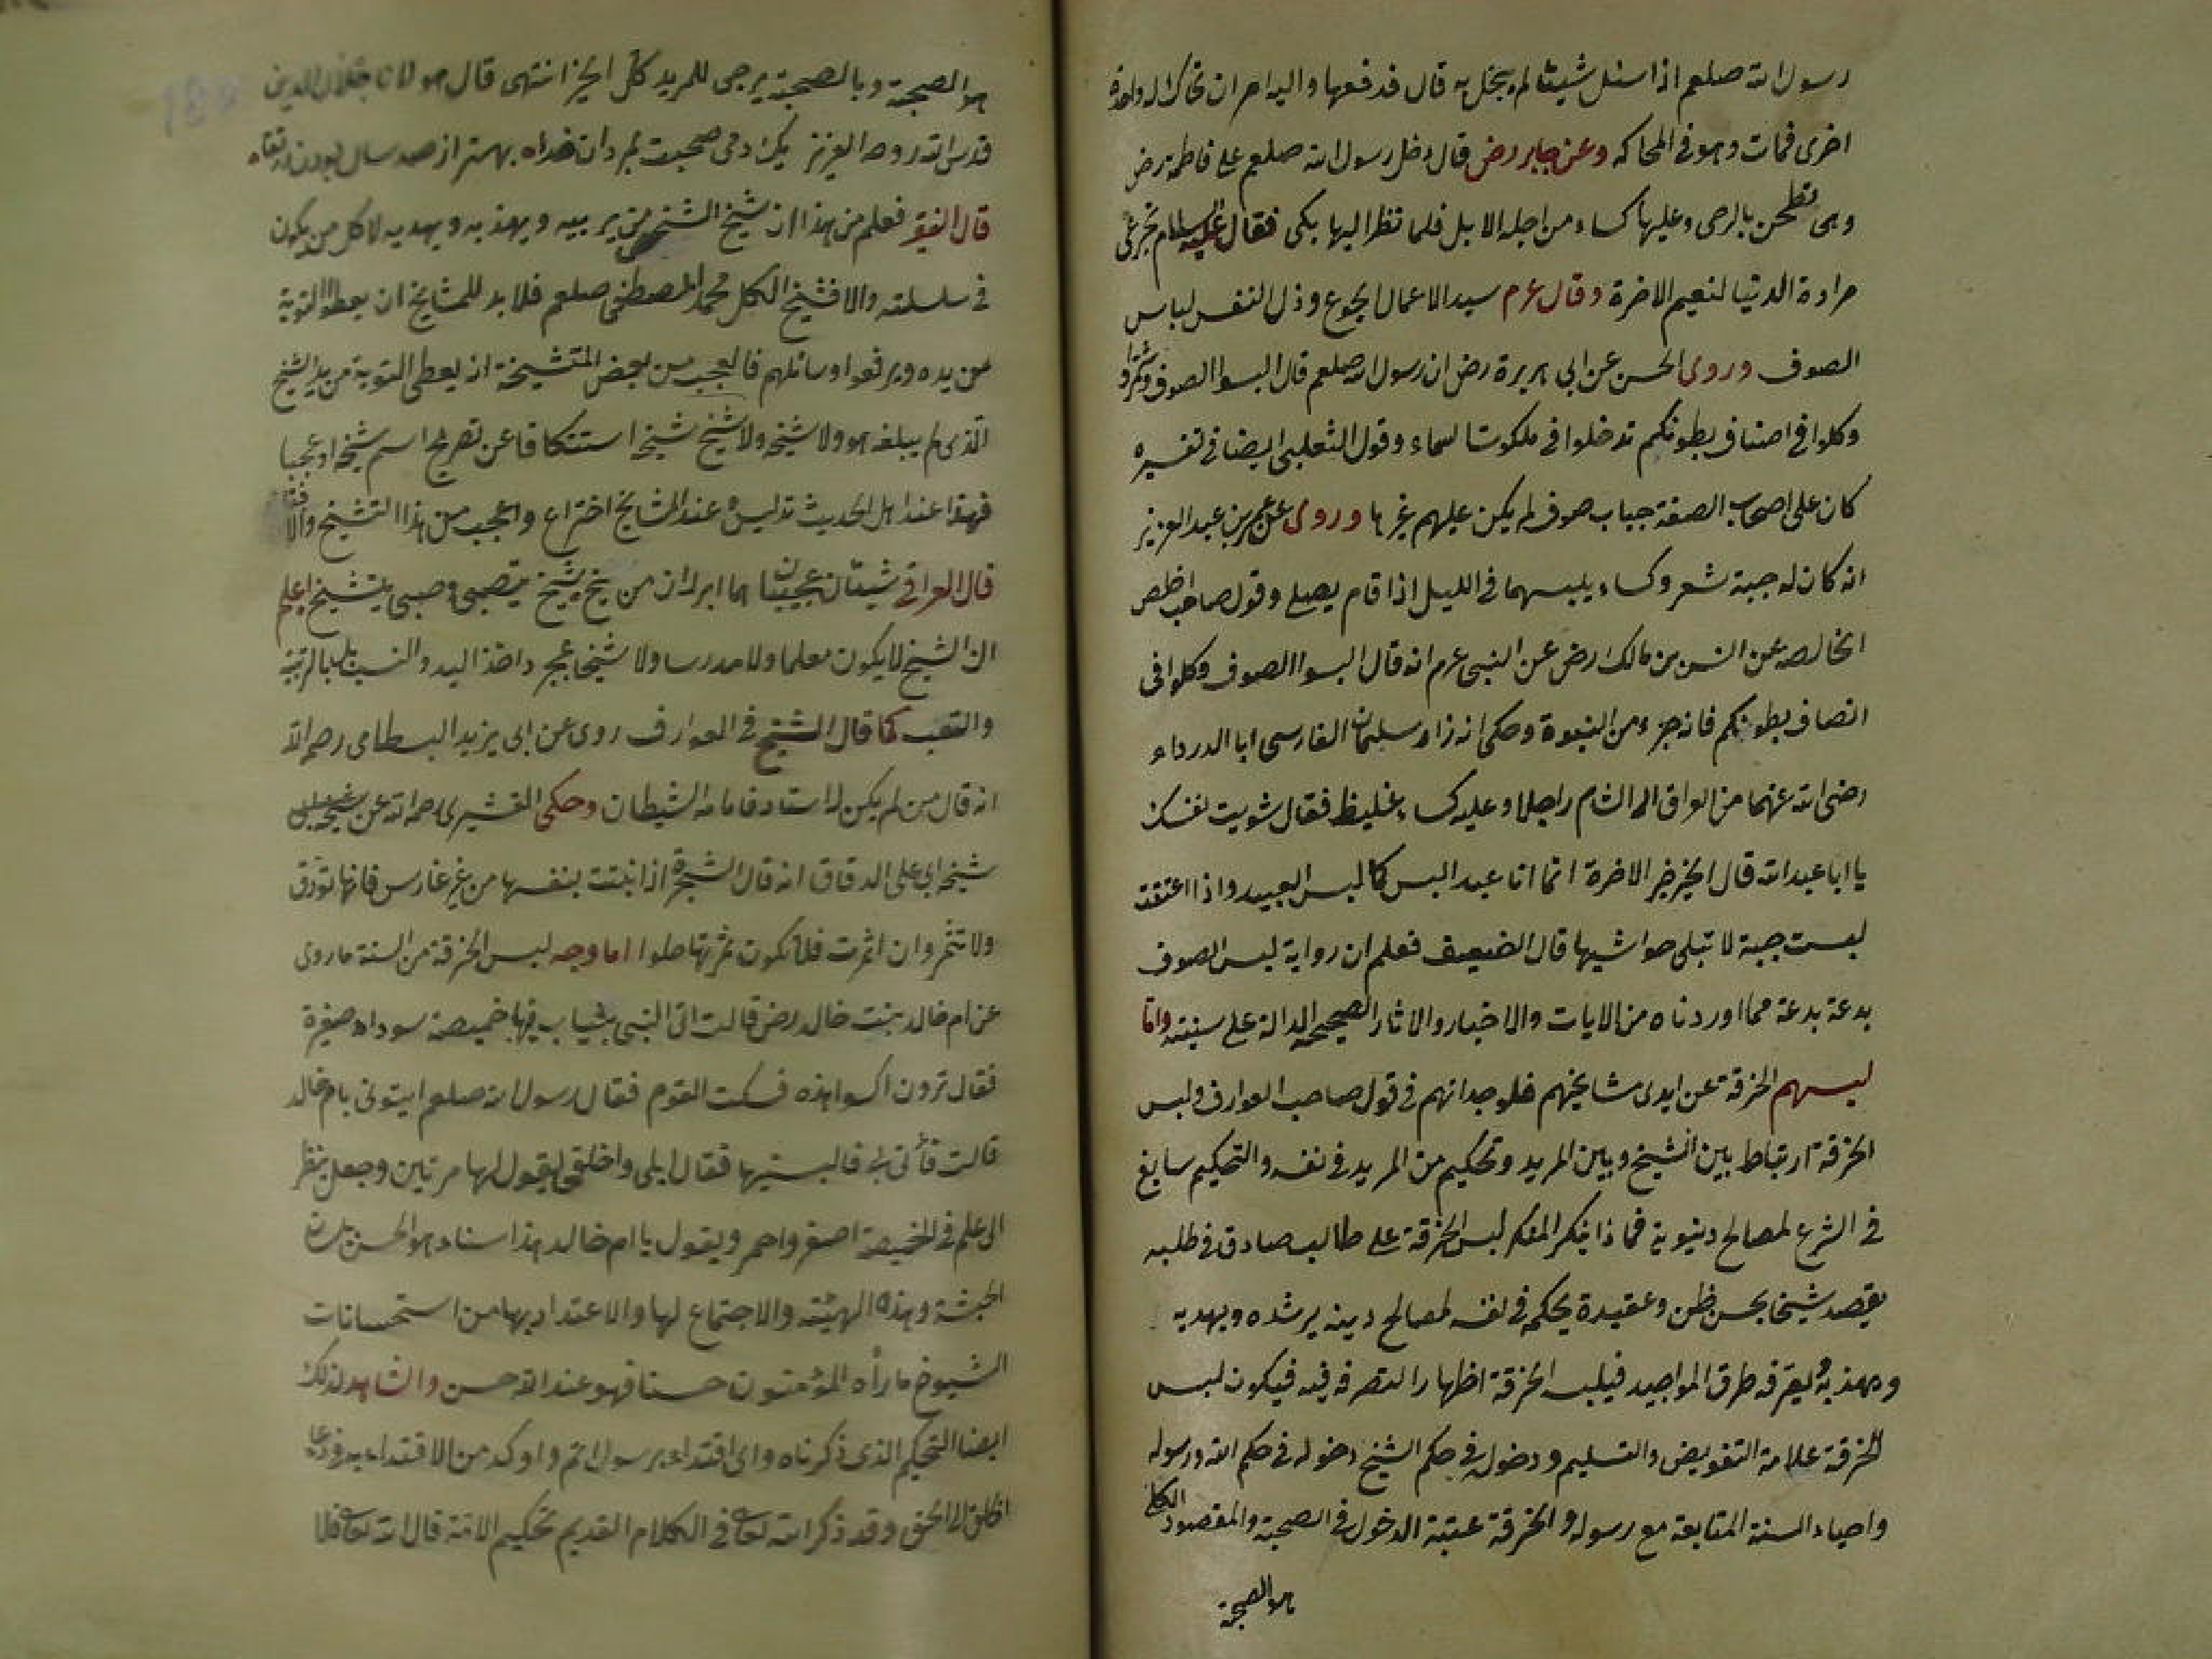 رسول الله صلعم اذا سئل شيئا لم يبخل به قال فدفعها واليه امر ان تحاك له واحدة
اخرى فمات وهو فى المحاكة وعن جابر رض قال دخل رسول الله صلعم على فاطمة رض
وهى تطحن بالرحى وعليها كساء من اجلة الابل فلما نظر اليها بكى فقال عليه السلام تجرعى
مرارة الدنيا لنعيم الاخرة وقال عرم سيد الاعمال الجوع وذل النفس لباس
الصوف وروى الحسن عن ابى هريرة رض ان رسول الله صلعم قال البسوا الصوف وشمروا
وكلوا فى انصاف بطونكم تدخلوا فى ملكوت السماء وقول الثعلبى ايضا فى تفسيره
كان على اصحاب الصفة جباب صوف لم يكن عليهم غيرها وروى عن عمر بن عبد العزيز
انه كان له جبة شعر وكساء يلبسهما فى الليل اذا قام يصلى وقول صاحب اخلص
الخالصه عن انس بن مالك رض عن النبى عرم انه قال البسوا الصوف وكلوا فى
انصاف بطونكم فانه جزء من النبوة وحكى انه زار سلمان الفارسى ابا الدرداء
رضى الله عنهما من العراق الى الشام راجلا وعليه كساء غليظ فقال شويت نفسك
يا ابا عبد الله قال الخير خير الاخرة انما انا عبد البس كما لبس العبيد واذا اعتقت
لبست جبة لا تبلى حواشيها قال الضعيف فعلم ان رواية لبس الصوف
بدعة بدعة مما اوردناه من الايات والاخبار والاثار الصحيحة الدالة على سنيته واما
لبسهم الخرقة عن ايدى مشايخهم فلوجدانهم فى قول صاحب العوارف ولبس
الخرقة ارتباط بين الشيخ وبين المريد وتحكيم من المريد فى نفسه والتحكيم سايغ
فى الشرع لمصالح دنيوية فماذا ينكر المنكر لبس الخرقة على طالب صادق فى طلبه
يقصد شيخا بحسن ظن وعقيدة يحكمه فى نفسه لمصالح دينه يرشده ويهديه
ويهذبه ويعرفه طرق المواجيد فيلبسه الخرقة اظهارا لتصرفه فيه فيكون لبس
الخرقة علامة التفويض والتسليم ودخوله فى حكم الشيخ دخوله فى حكم الله ورسوله
واحياء السنة المتابعة مع رسوله والخرقة عتبة الدخول فى الصحبة والمقصود الكلى
هو الصحبة
هو الصحبة وبالصحبة يرجى للمريد كل الخير انتهى قال مولانا جلال الدين
قدس الله روحه العزيز يك دمى صحبت بمردان خداه بهتر از صد سال بودن در تقاه
قال الفقير فعلم من هذا ان شيخ الشخص من يربيه ويهذبه ويهديه لا كل من يكون
فى سلسلته والا فشيخ الكل محمد المصطفى صلعم فلا بد للمشايخ ان يعطوا التوبة
عن يده ويرفعوا وسائلهم فالعجب من بعض المتشيخة انه يعطى التوبة من يد الشيخ
الذى لم يبلغه هو ولا شيخه ولا شيخ شيخه استنكافا عن تصريح اسم شيخه او عجبا
فهذا عند اهل الحديث تدليس وعند المشايخ اختراع واعجب من هذا التشيخ والا
قال العراقى شيئان عجيبان هما ابرد من يخ شيخ يتصبى وصبى يتشيخ اعلم
ان الشيخ لا يكون معلما ولا مدرسا ولا شيخا بمجرد اخذ اليد والنسبة بل بالتربية
والتعب كما قال الشيخ فى العوارف روى عن ابى يزيد البسطامى رحمه الله
انه قال من لم يكن له استاد فامامه الشيطان وحكى القشيرى رحمه الله عن
شيخه ابى على الدقاق انه قال الشجرة اذا نبتت بنفسها من غير غارس فانها تورق
ولا تثمر وان اثمرت فلا تكون ثمرتها حلوا اما وجه لبس الخرقة من السنة ما روى
عن ام خالد بنت خالد رض قالت اتى النبى بثياب فيها خميصة سوداء صغيرة
فقال ترون اكسوا هذه فسكت القوم فقال رسول الله صلعم ايتونى بام خالد
قالت فأتى بى فالبسنيها فقال ابلى واخلقى يقول لها مرتين وجعل ينظر
الى علم فى الخميصة اصفر واحمر ويقول يا ام خالد هذا سناه هو الحسن بلسان
الحبشة وهذه الهيئة والاجتماع لها والاعتداد بها من استحسانات
الشيوخ ما رأه المؤمنون حسنا فهو عند الله حسن والشاهد لذلك
ايضا التحكيم الذى ذكرناه واى اقتداء برسول الله اتم واوكد من الاقتداء به فى دعاء
الخلق الى الحق وقد ذكر الله تعالى فى الكلام القديم تحكيم الامة قال الله تعالى فلا